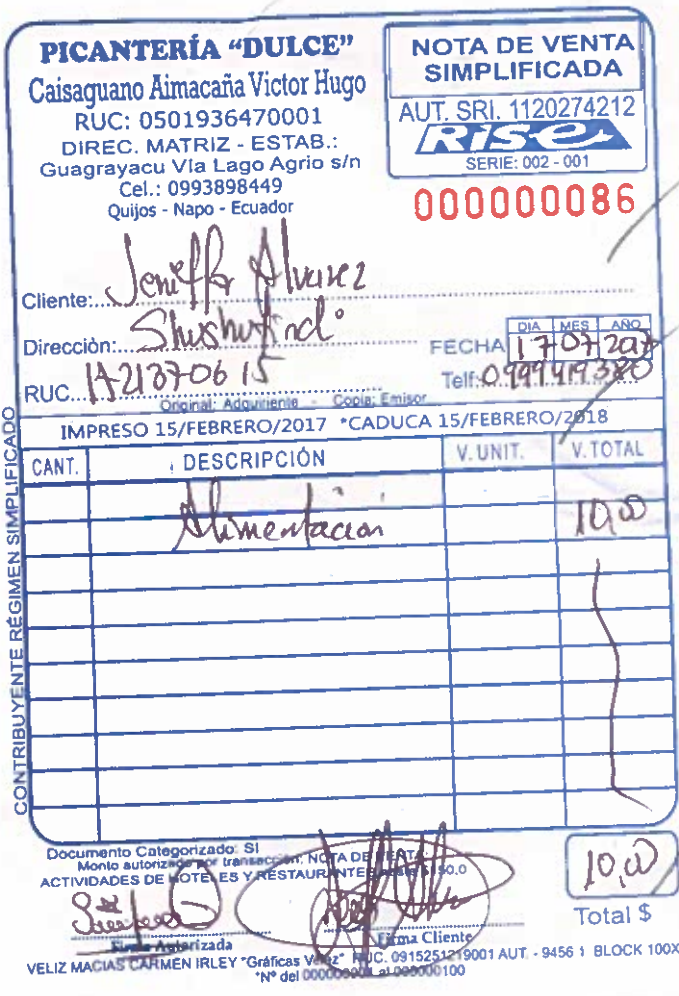 PICANTERÍA “DULCE”
Caisaguano Aimacaña Victor Hugo
RUC: 0501936470001
DIREC. MATRIZ - ESTAB.:
Guagrayacu Vía Lago Agrio s/n
Cel.: 0993898449
Quijos - Napo - Ecuador
NOTA DE VENTA
SIMPLIFICADA
AUT. SRI. 1120274212
Rise
SERIE: 002 - 001
000000086
Cliente: Jeniffer Alvarez
Dirección: Shushufindi
FECHA DIA MES AÑO
17 07 2017
RUC. 1721370615
Telf: 0999419380
Original: Adquiriente - Copia: Emisor
IMPRESO 15/FEBRERO/2017 *CADUCA 15/FEBRERO/2018
CONTRIBUYENTE RÉGIMEN SIMPLIFICADO
CANT. DESCRIPCIÓN V. UNIT. V. TOTAL
Alimentacion 10,00
Documento Categorizado: SI
Monto autorizado por transacción: NOTA DE VENTA
ACTIVIDADES DE HOTELES Y RESTAURANTES
10,00
Total $
Firma Autorizada
Firma Cliente
VELIZ MACIAS CARMEN IRLEY "Gráficas Veliz" RUC. 0915251219001 AUT. - 9456 1 BLOCK 100X
"Nº del 000000001 al 000000100